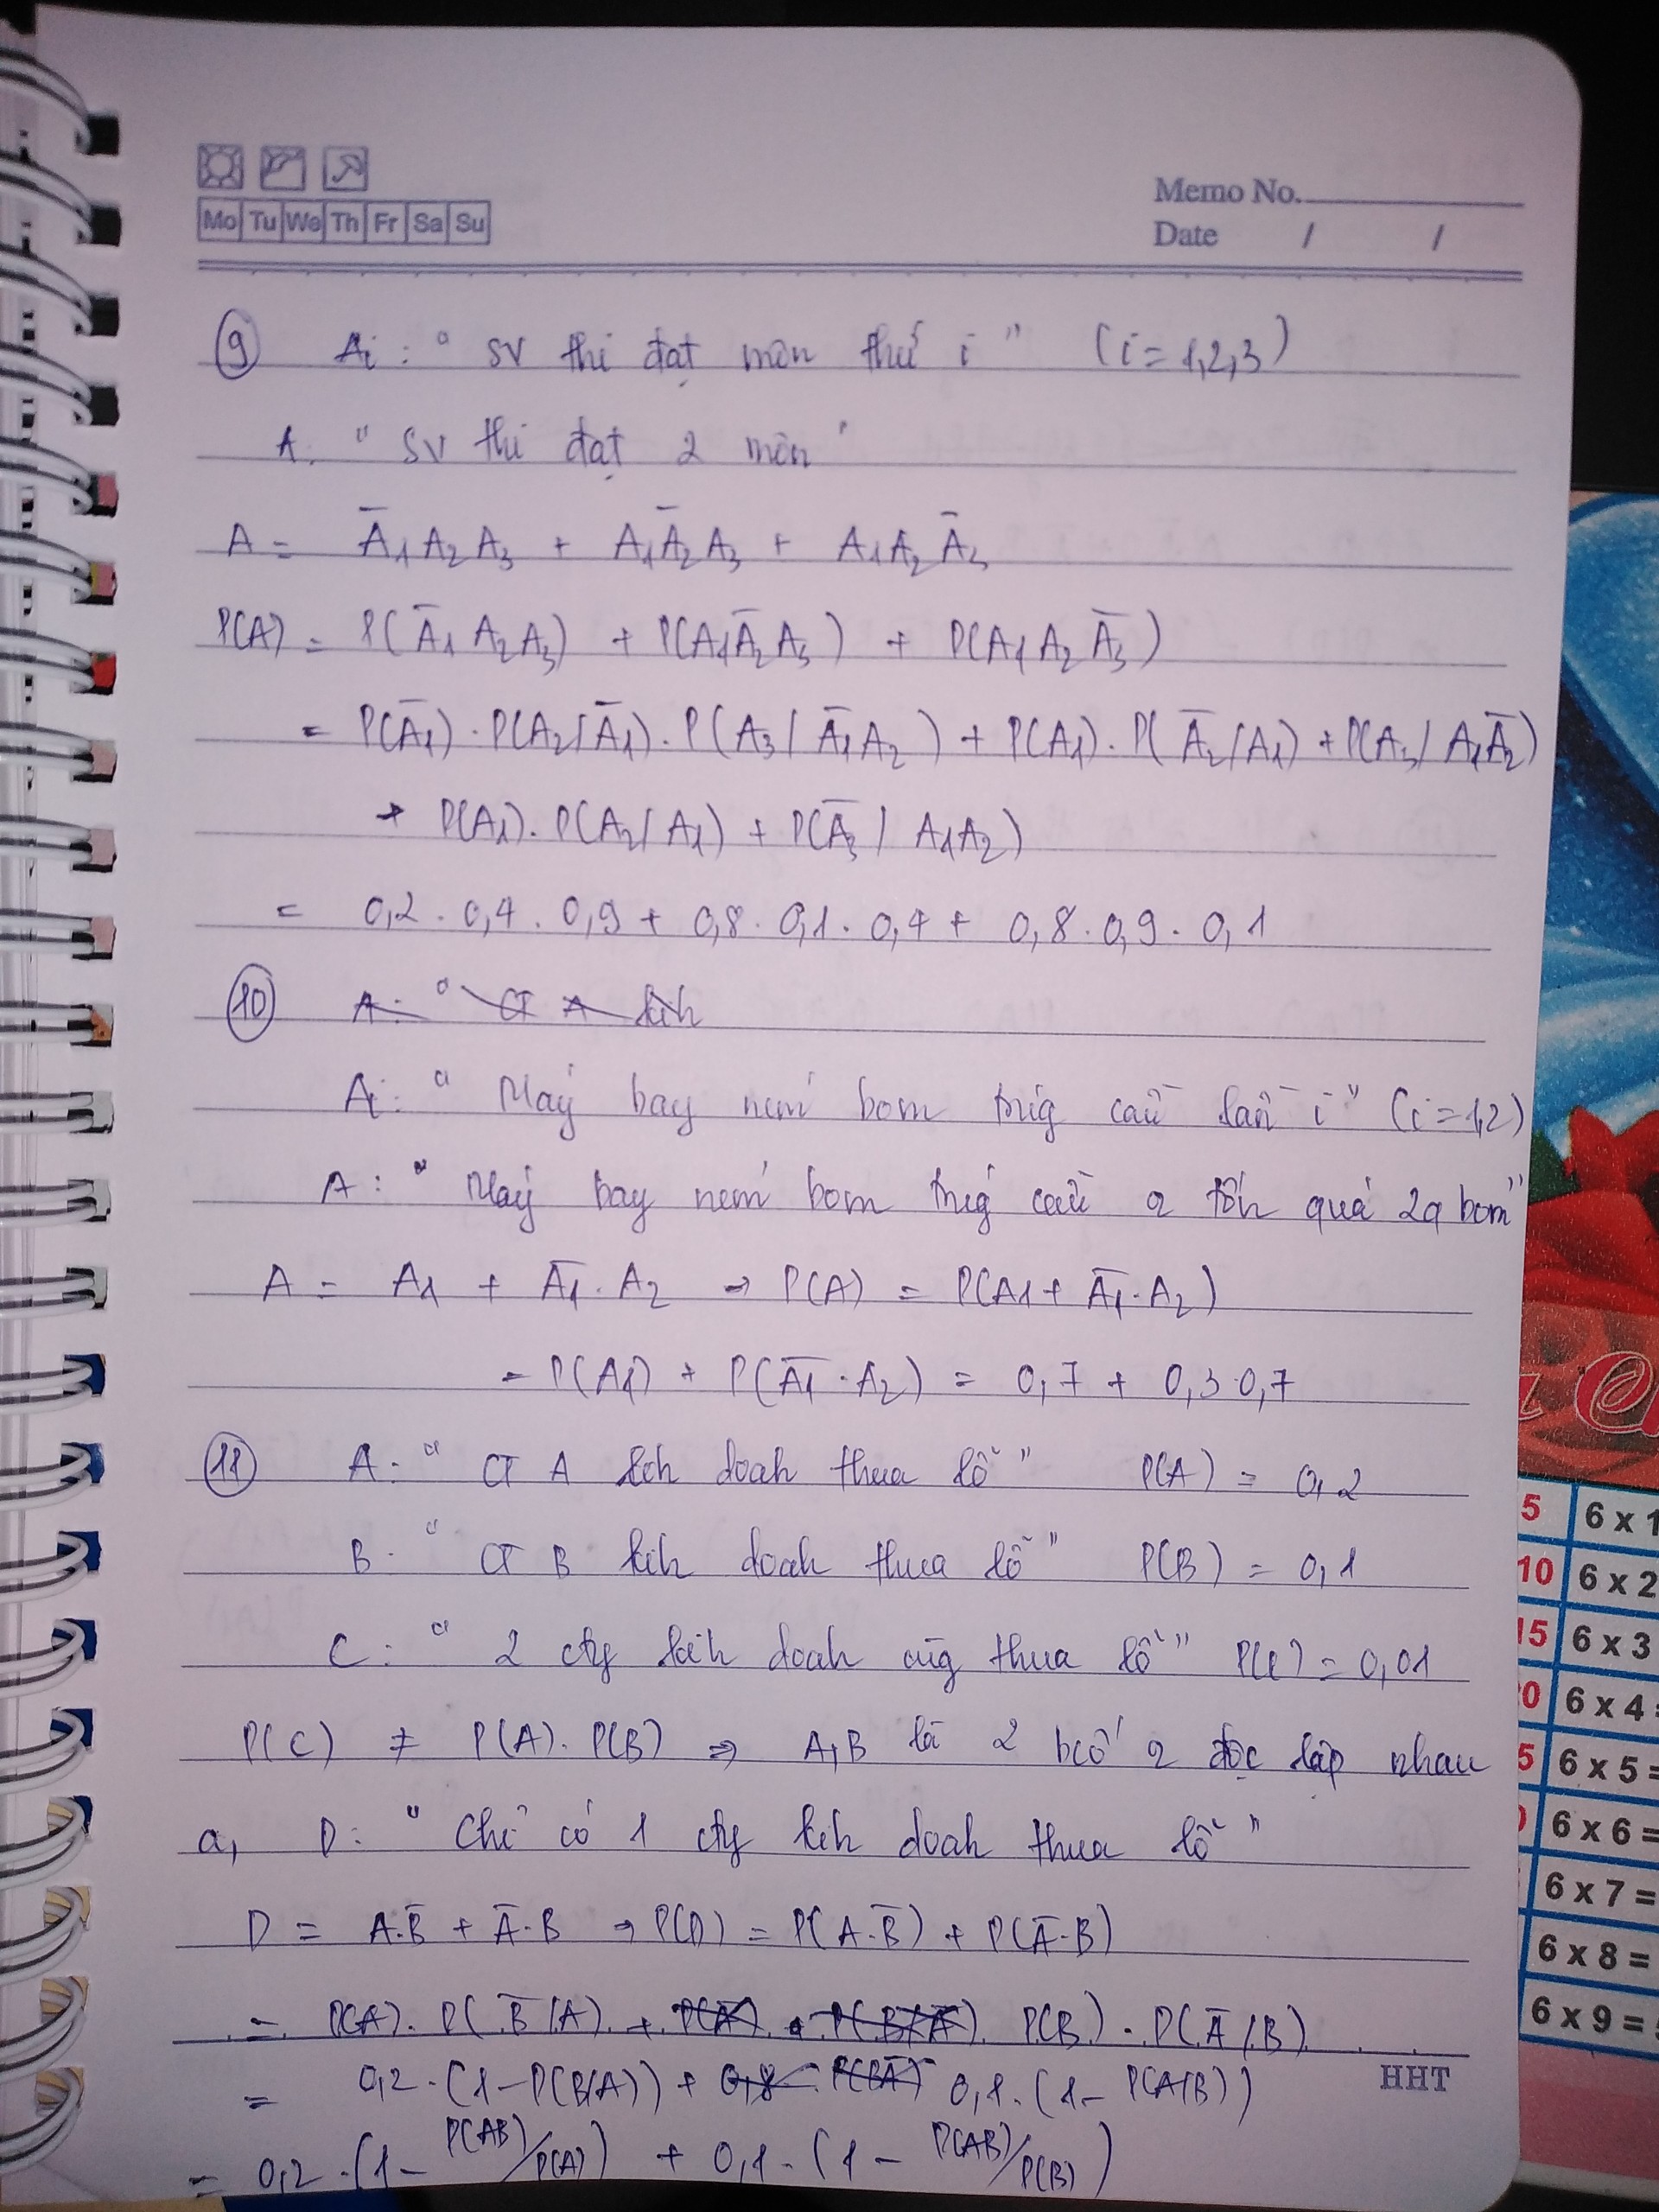 Mo Tu We Th Fr Sa Su
Memo No.
Date / /
9 Ai : " SV thi đạt môn thứ i " (i = 1,2,3)
A: " SV thi đạt 2 môn "
A = Ā1 A2 A3 + A1 Ā2 A3 + A1 A2 Ā3
P(A) = P(Ā1 A2 A3) + P(A1 Ā2 A3) + P(A1 A2 Ā3)
= P(Ā1) . P(A2/Ā1) . P(A3/Ā1 A2) + P(A1) . P(Ā2/A1) + P(A3/A1 Ā2)
+ P(A1) . P(A2/A1) + P(Ā3/A1A2)
= 0,2 . 0,4 . 0,9 + 0,8 . 0,1 . 0,4 + 0,8 . 0,9 . 0,1
10 A: " CT A kih
Ai: " Máy bay ném bom trúg cầu lần i " (i = 1,2)
A: " Máy bay ném bom trúg cầu tốn quá 2q bom "
A = A1 + Ā1 . A2 → P(A) = P(A1 + Ā1 . A2)
= P(A1) + P(Ā1 . A2) = 0,7 + 0,3.0,7
11 A: " CT A kih doah thua lỗ " P(A) = 0,2
B: " CT B kih doah thua lỗ " P(B) = 0,1
C: " 2 cty kih doah cùg thua lỗ " P(C) = 0,01
P(C) ≠ P(A) . P(B) ⇒ A,B là 2 bcố độc lập nhau
a, D: " Chỉ có 1 cty kih doah thua lỗ "
D = A.B̄ + Ā.B → P(D) = P(A.B̄) + P(Ā.B)
= P(A) . P(B̄/A) + P(Ā) . P(B/Ā) P(B) . P(Ā/B)
= 0,2 . (1 - P(B/A)) + 0,8 . P(BĀ) 0,1 . (1 - P(A/B))
= 0,2 . (1 - P(AB)/P(A)) + 0,1 . (1 - P(AB)/P(B))
HHT
5 6 x 1
10 6 x 2
15 6 x 3
0 6 x 4 =
5 6 x 5 =
6 x 6 =
6 x 7 =
6 x 8 =
6 x 9 =